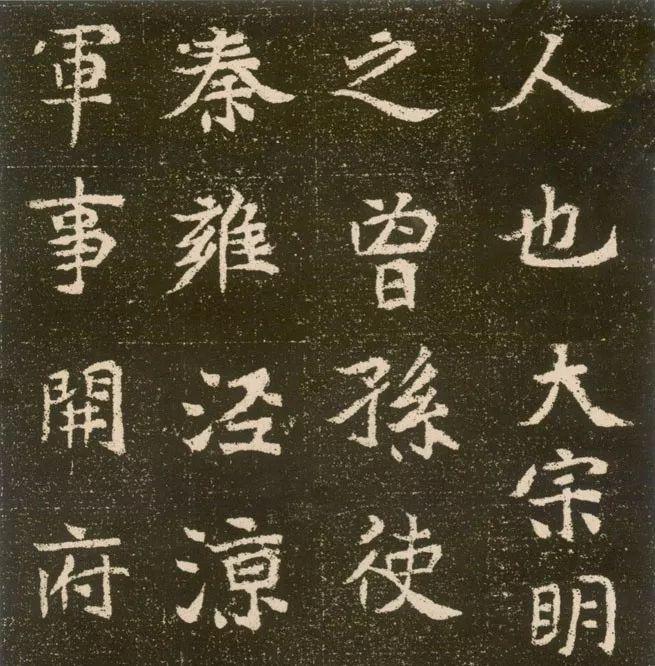 人也大宗明
之曾孫使
秦雍泾涼
軍事開府